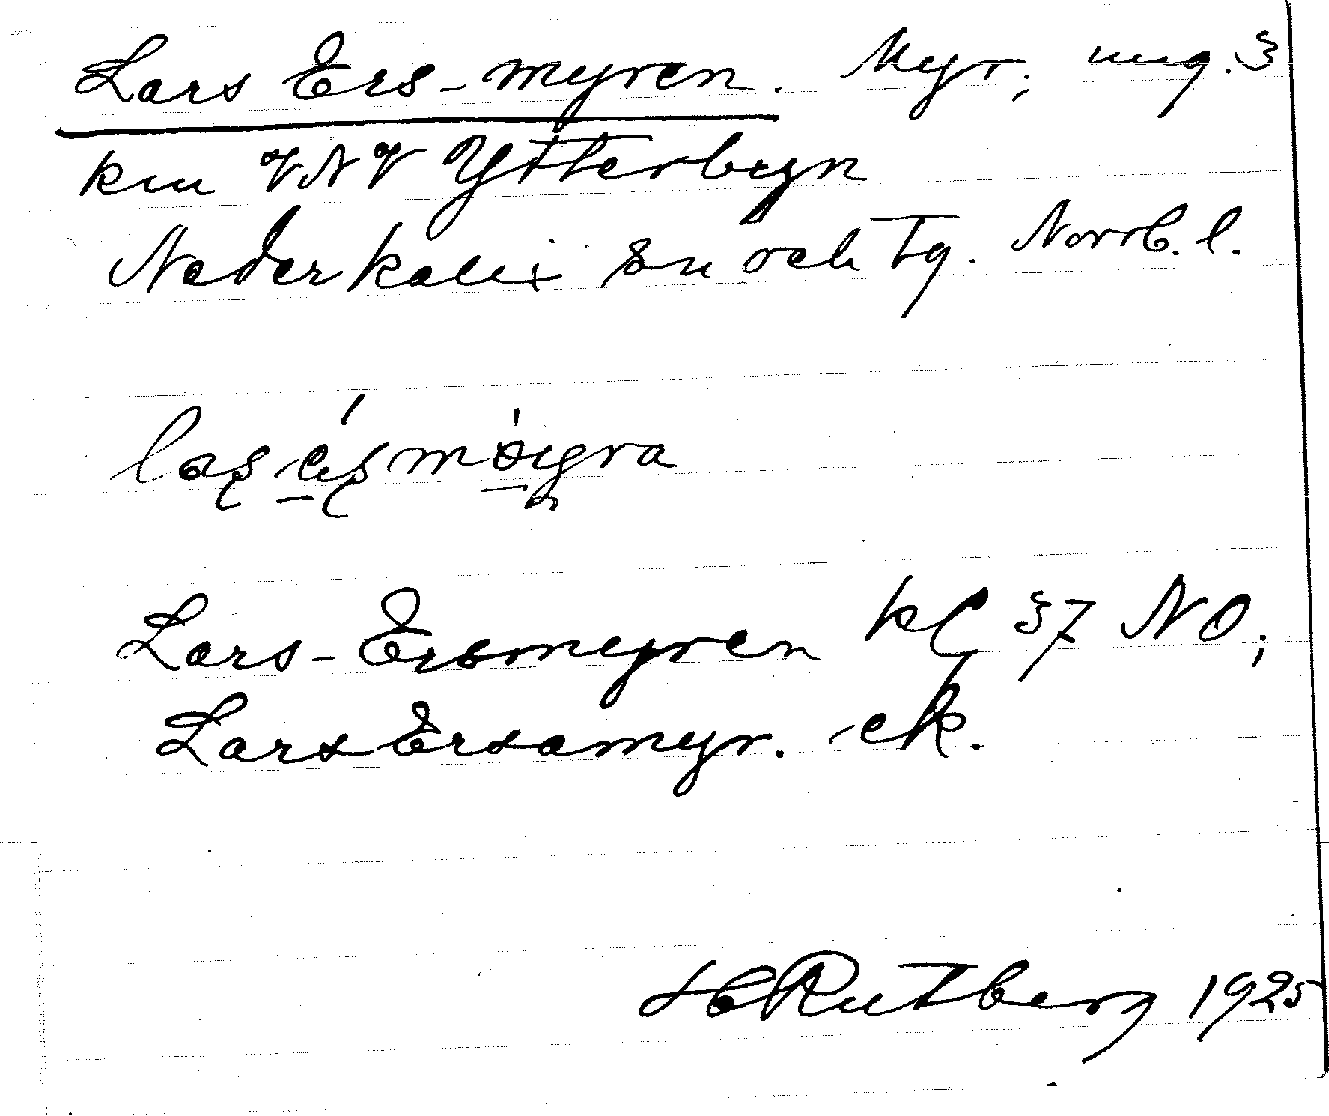 Lars Ers-myren. Myr, ung. 3
km VNV Ytterbyn
Nederkalix sn och tg. Norrb. l.
Lars-Ersmyren kl 37 NO,
Lars Ersamyr. ek.
H Rutberg 1925